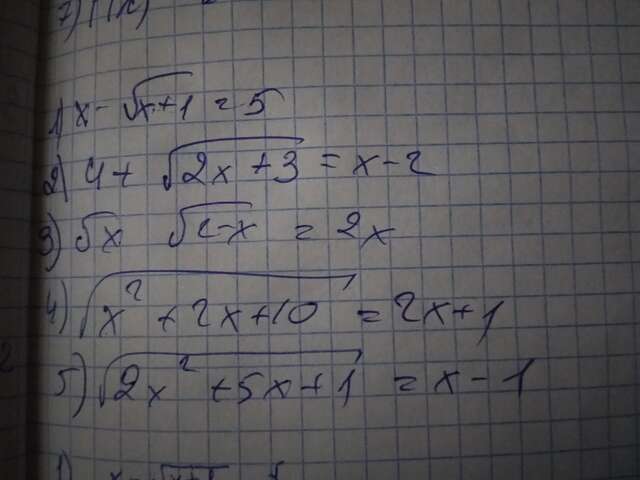 1) x - √(x+1) = 5
2) 4 + √(2x + 3) = x - 2
3) √x √(2-x) = 2x
4) √(x² + 2x + 10) = 2x + 1
5) √(2x² + 5x + 1) = x - 1